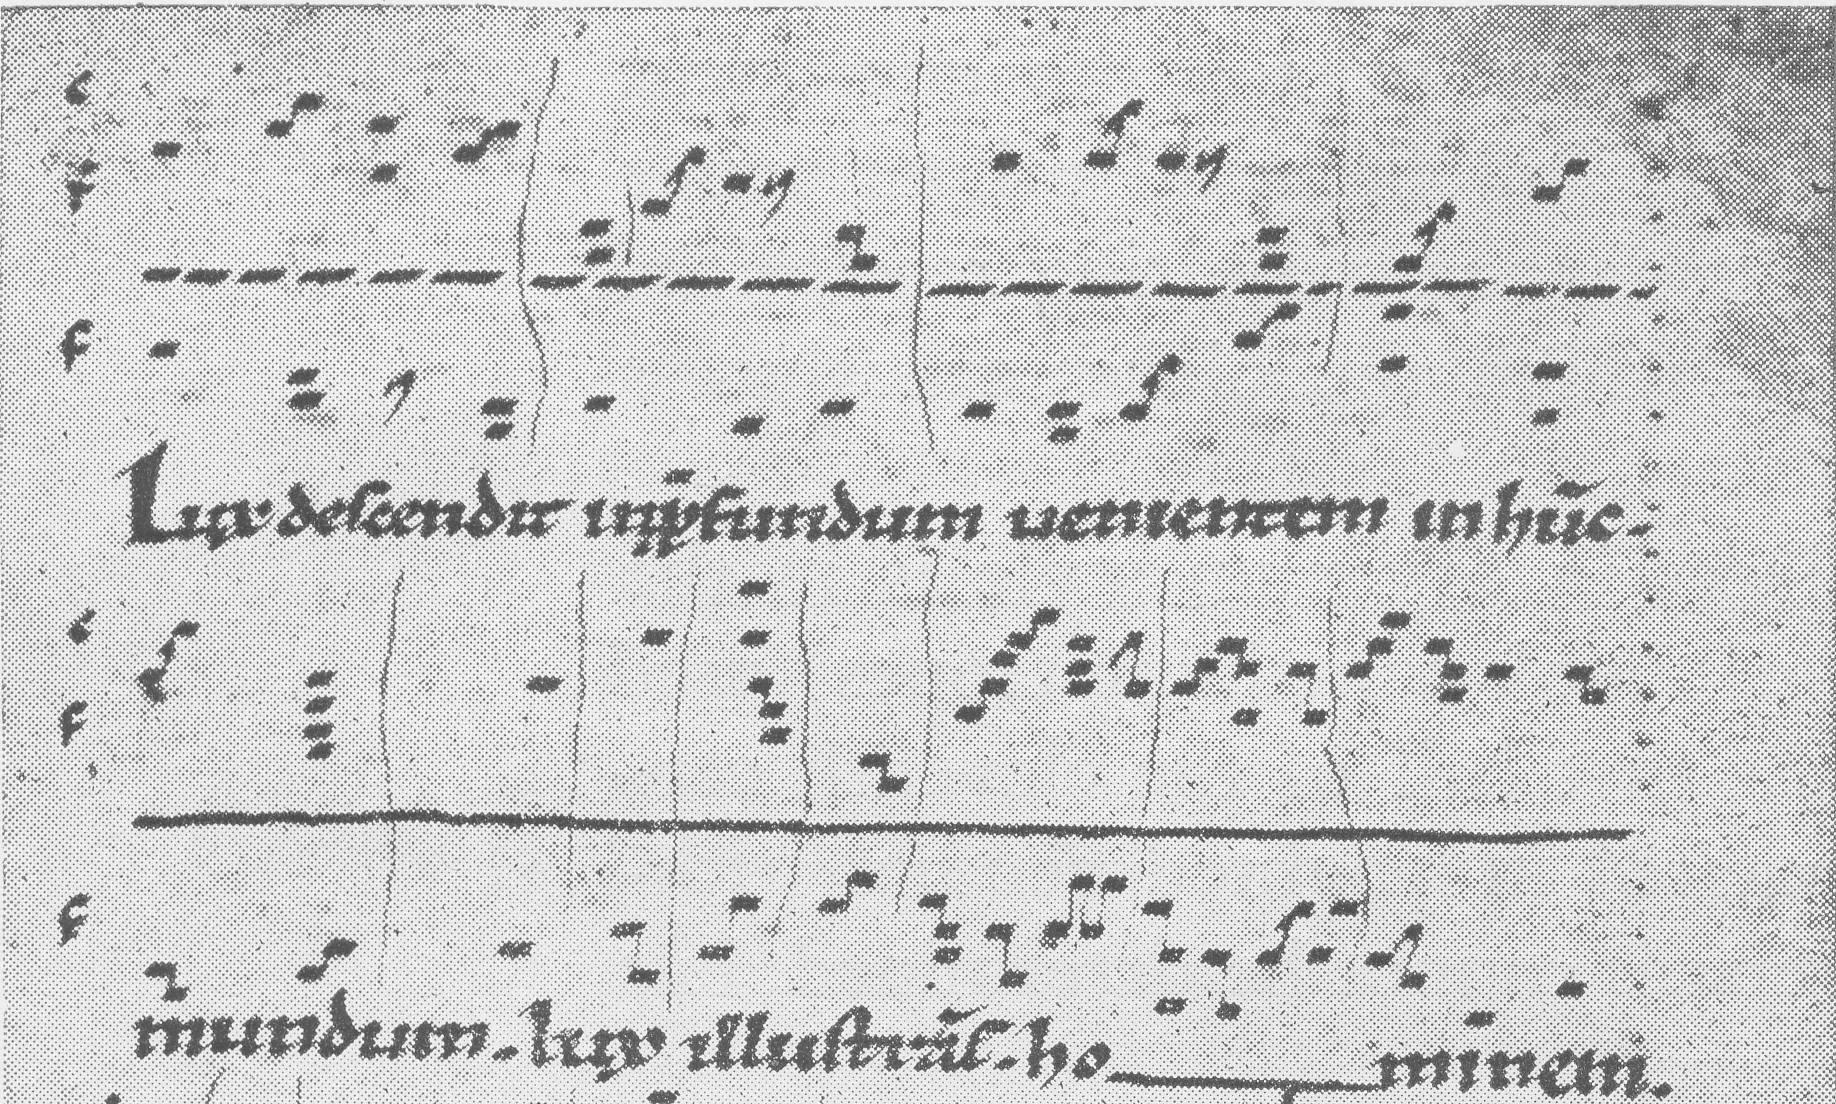 c
F
f
Lux descendit inꝓfundum uenientem in hũc.
c
f
f
mundum. lux illustrãs. ho minem.